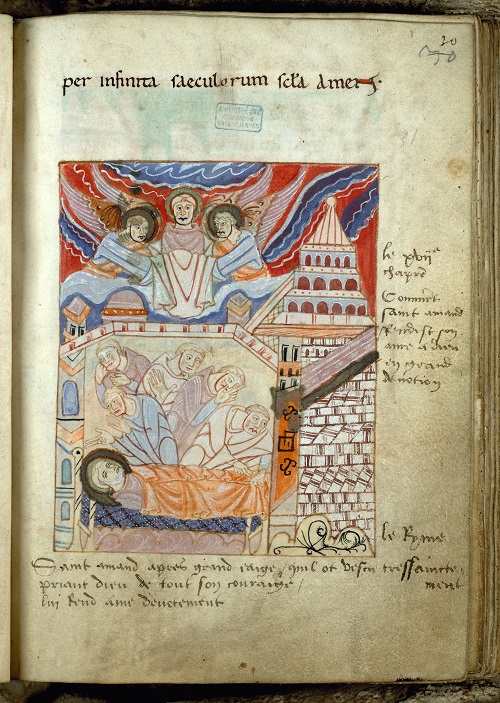 20
per infinita saeculorum scła amen
BIBLIOTHEQUE
VALENCIENNES
le xviiᵉ
chapre
Comment
saint amand
Rendit son
ame a dieu
en grand
devotion
le Ryme
Saint amand apres grand eaige, quil ot vescu tressaincte-
ment
priant dieu de tout son couraige
lui Rend ame devotement